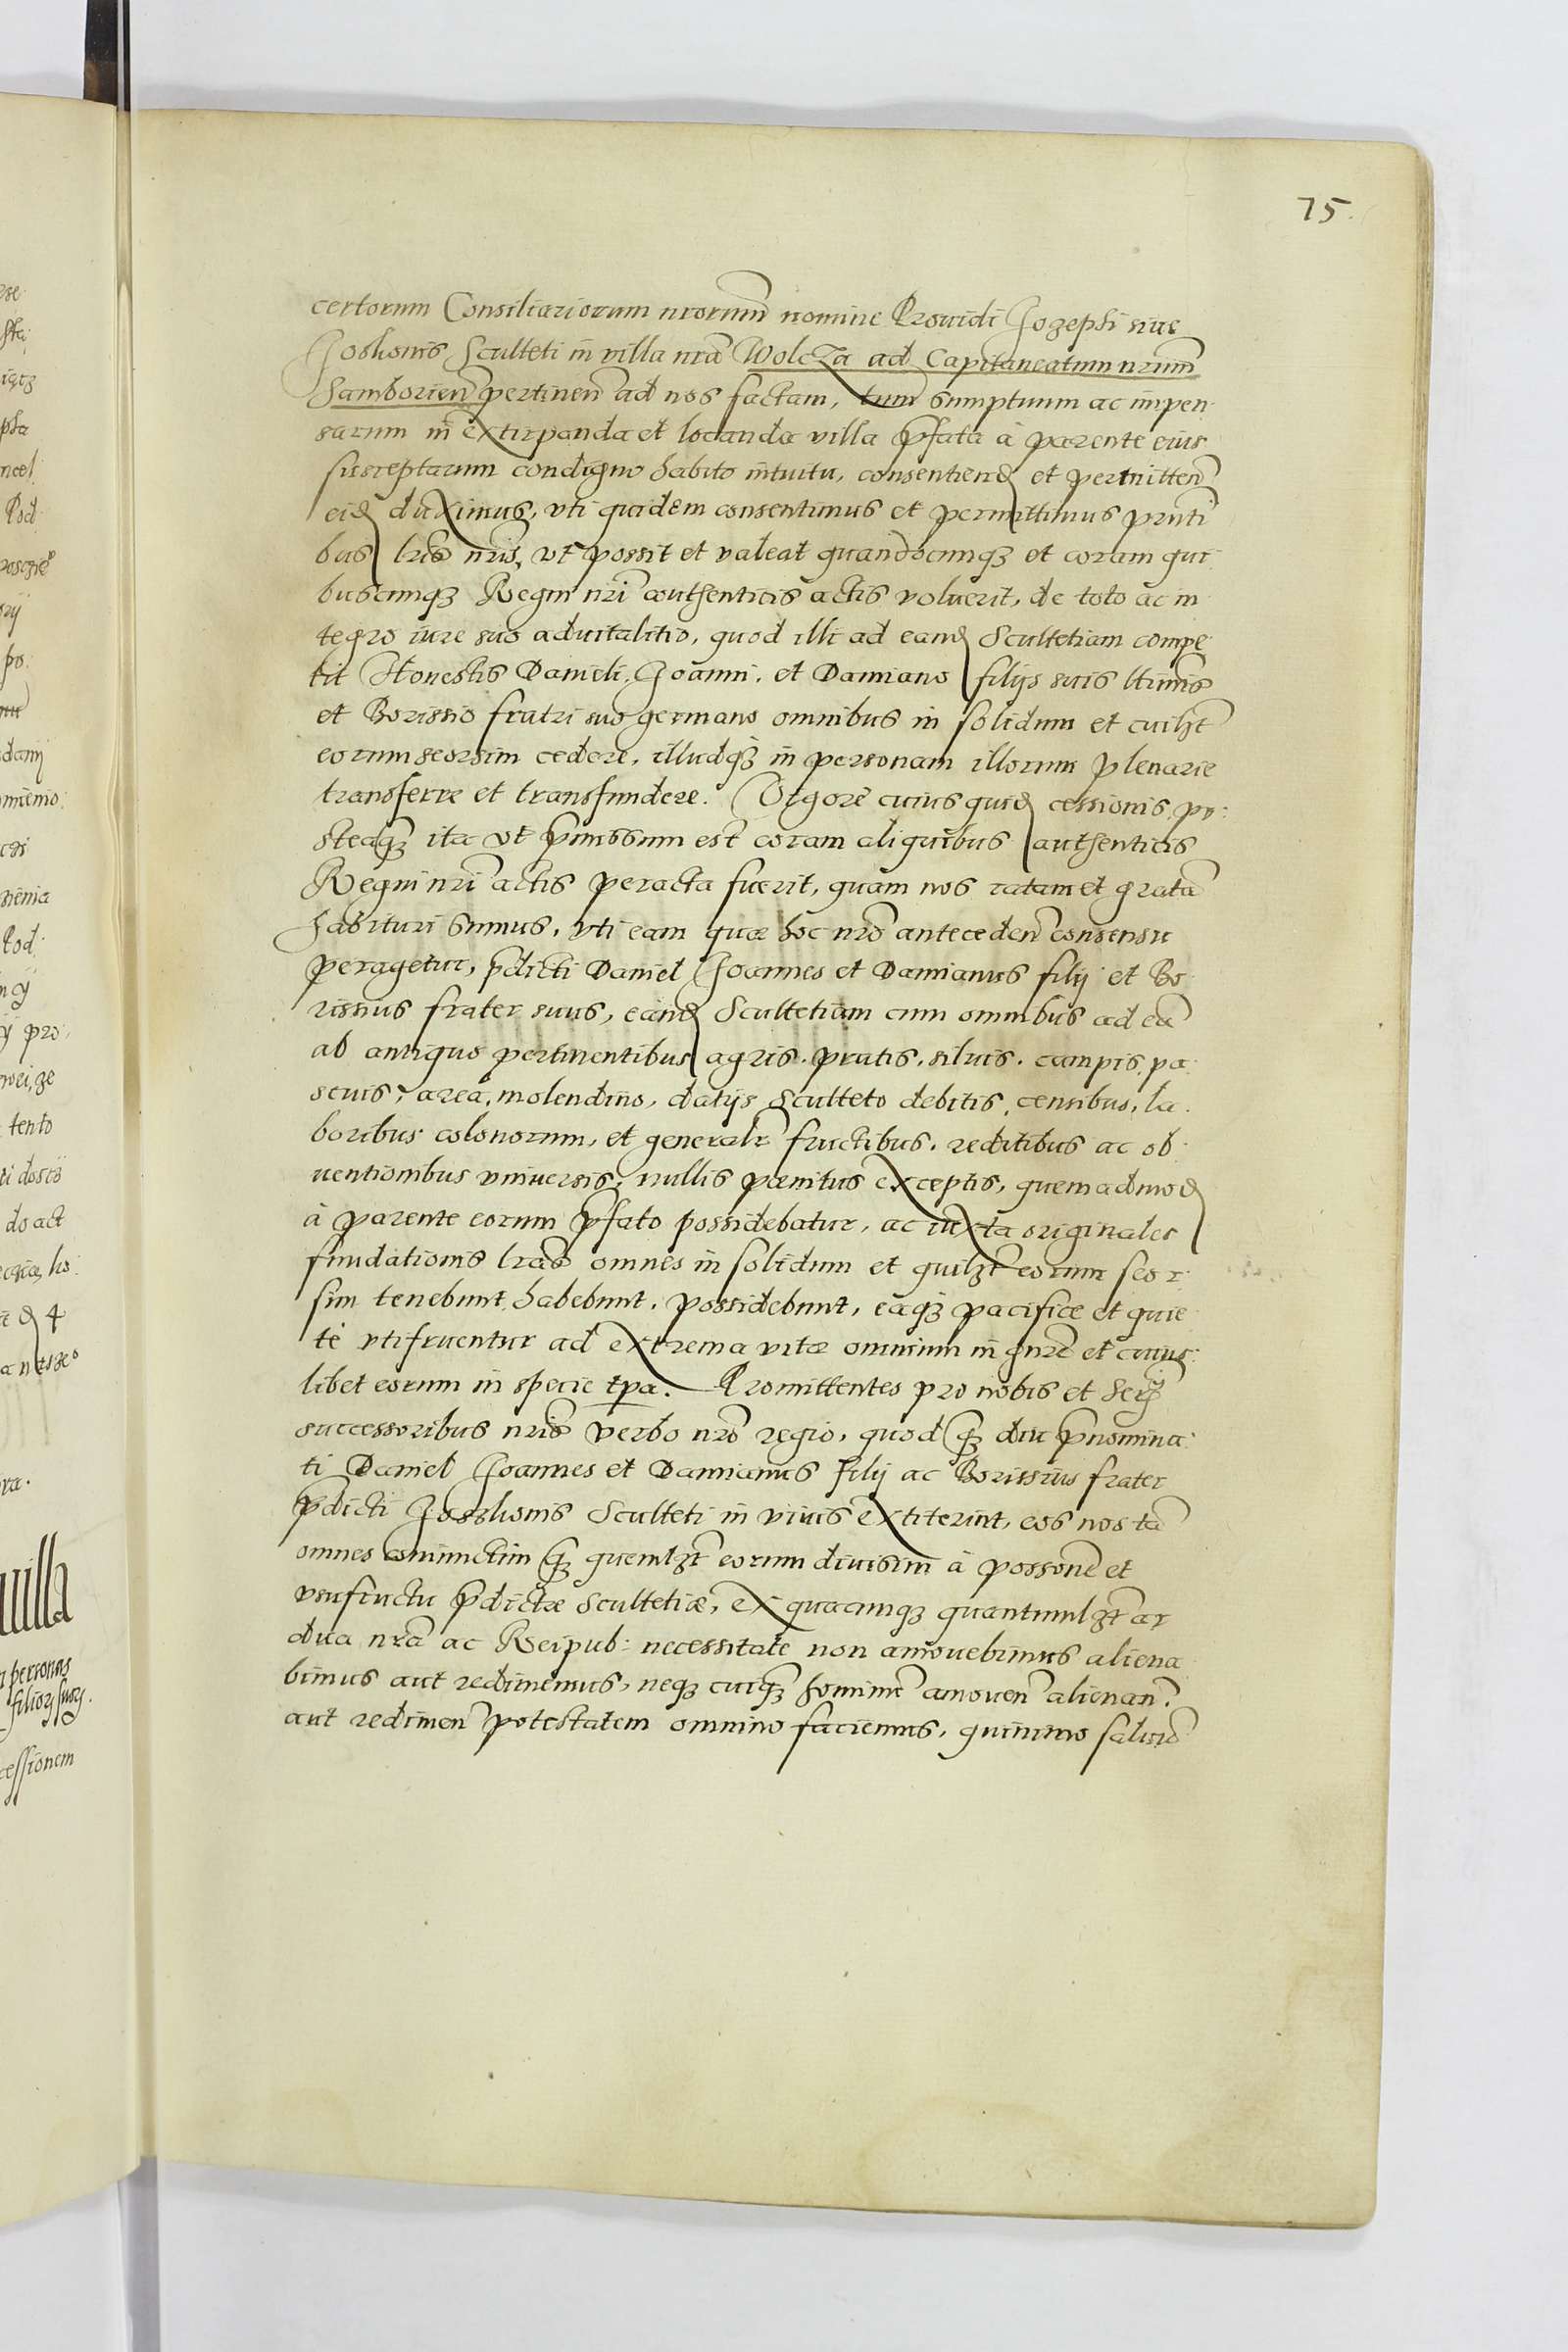 75.
certorum Consiliariorum nrorum nomine Prouidi Jozephi siue
Joskonis Sculteti in villa nra Wolcza ad Capitaneatum nrum
Samborien pertinen ad nos factam, tum sumptuum ac impen
sarum in extirpanda et locanda villa pfata à parente eius
susceptarum condigno habito intuitu, consentiend et permitten
eid duximus, vti quidem consentimus et permittimus pnti
bus lris nris, vt possit et valeat quandocunqz et coram qui
buscunqz Regni nri authenticis actis voluerit, de toto ac in
tegro iure suo aduitalitio, quod illi ad eand Scultetiam compe
tit Honestis Danieli, Joanni, et Damiano filijs suis ltimis
et Borissio fratri suo germano omnibus in solidum et cuilzt
eorum seorsim cedere, illudqz in personam illorum plenarie
transferre et transfundere. Vigore cuius quid cessionis, po:
steaqz ita vt pmissum est coram aliquibus authenticis
Regni nri actis peracta fuerit, quam nos ratam et grata
habituri sumus, vti eam quæ hoc nro anteceden consensu
peragetur, pdicti Daniel Joannes et Damianus filij et Bo
rissius frater suus, eand Scultetiam cum omnibus ad ea
ab antiquo pertinentibus agris, pratis, siluis, campis, pa
scuis, area, molendino, datijs Sculteto debitis, censibus, la
boribus colonorum, et generalr fructibus, reditibus ac ob
uentionibus vniuersis, nullis pænitus exceptis, quemadmod
à parente eorum pfato possidebatur, ac iuxta originales
fundationis lras omnes in solidum et quilzt eorum seor
sim tenebunt, habebunt, possidebunt, eaqz pacifice et quie
te vtifruentur ad extrema vitæ omnium in gnre et cuius
libet eorum in specie tpa. Promittentes pro nobis et Ser
successoribus nris verbo nro regio, quod qz diu pnomina
ti Daniel Joannes et Damianus filij ac Borissius frater
pdicti Joskonis Sculteti in viuis extiterint, eos nos ta
omnes coniunctim qz quemlzt eorum diuisim à possone et
vsufructu pdictæ Scultetiæ, ex quacunqz quantumlzt ar
dua nra ac Reipub: necessitate non amouebimus aliena
bimus aut redimemus, neqz cuiqz homini amouen alienan
aut redimen potestatem omnino faciemus, quinimo saluu